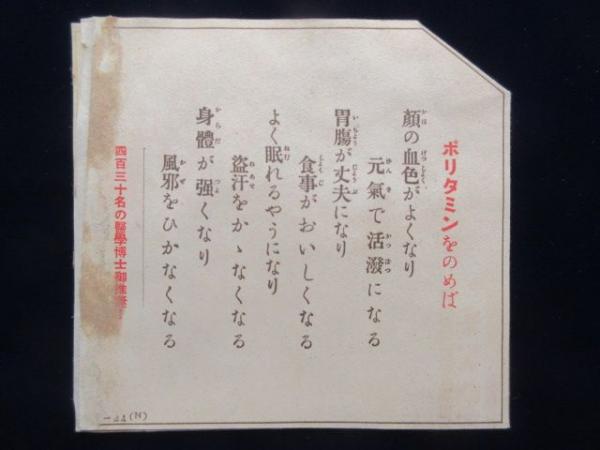 ポリタミンをのめば
顔の血色がよくなり
元氣で活潑になる
胃腸が丈夫になり
食事がおいしくなる
よく眠れるやうになり
盜汗をかゝなくなる
身體が强くなり
風邪をひかなくなる
四百三十名の醫學博士御推奬
(N)